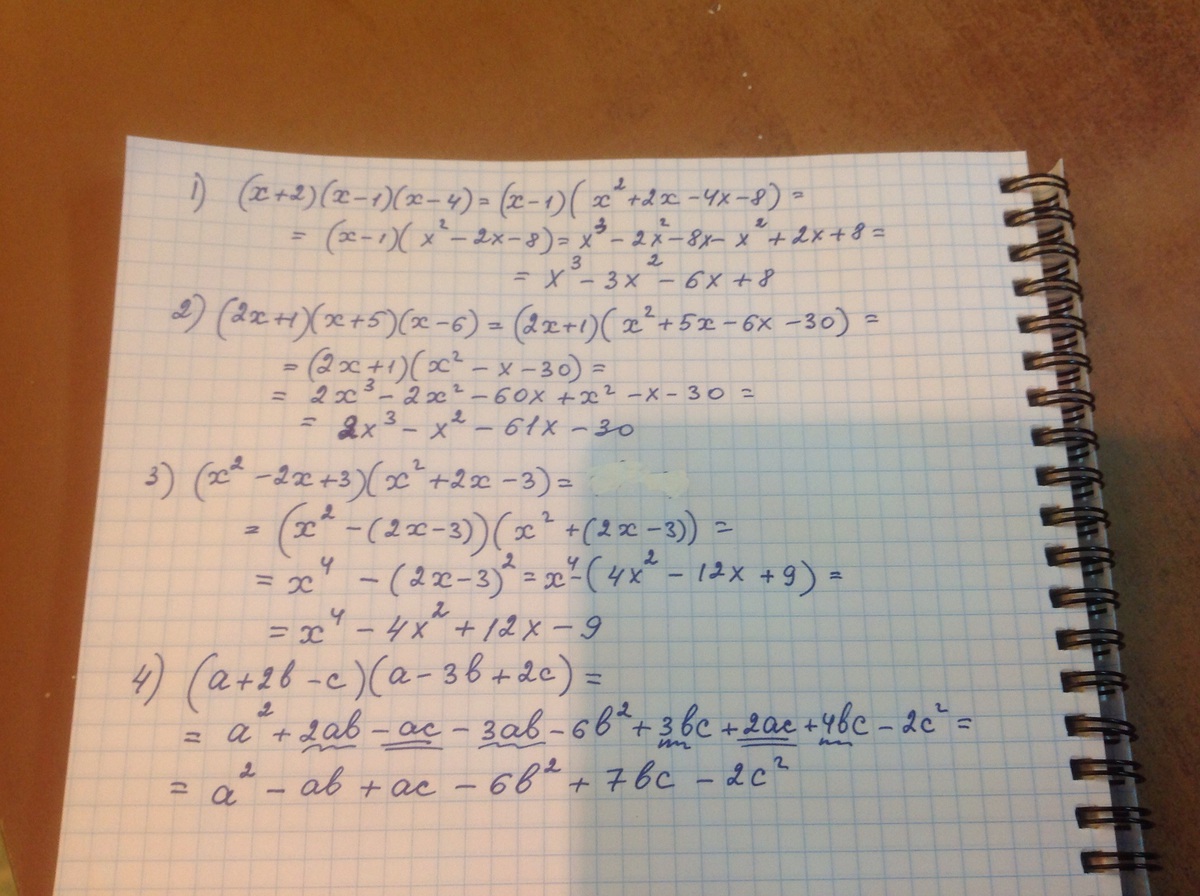 1) (x+2)(x-1)(x-4) = (x-1)(x²+2x-4x-8) =
= (x-1)(x²-2x-8) = x³-2x²-8x-x²+2x+8 =
= x³-3x²-6x+8
2) (2x+1)(x+5)(x-6) = (2x+1)(x²+5x-6x-30) =
= (2x+1)(x²-x-30) =
= 2x³-2x²-60x+x²-x-30 =
= 2x³-x²-61x-30
3) (x²-2x+3)(x²+2x-3) =
= (x²-(2x-3))(x²+(2x-3)) =
= x⁴-(2x-3)² = x⁴-(4x²-12x+9) =
= x⁴-4x²+12x-9
4) (a+2в-c)(a-3в+2c) =
= a²+2aв-ac-3aв-6в²+3вc+2ac+4вc-2c² =
= a²-aв+ac-6в²+7вc-2c²